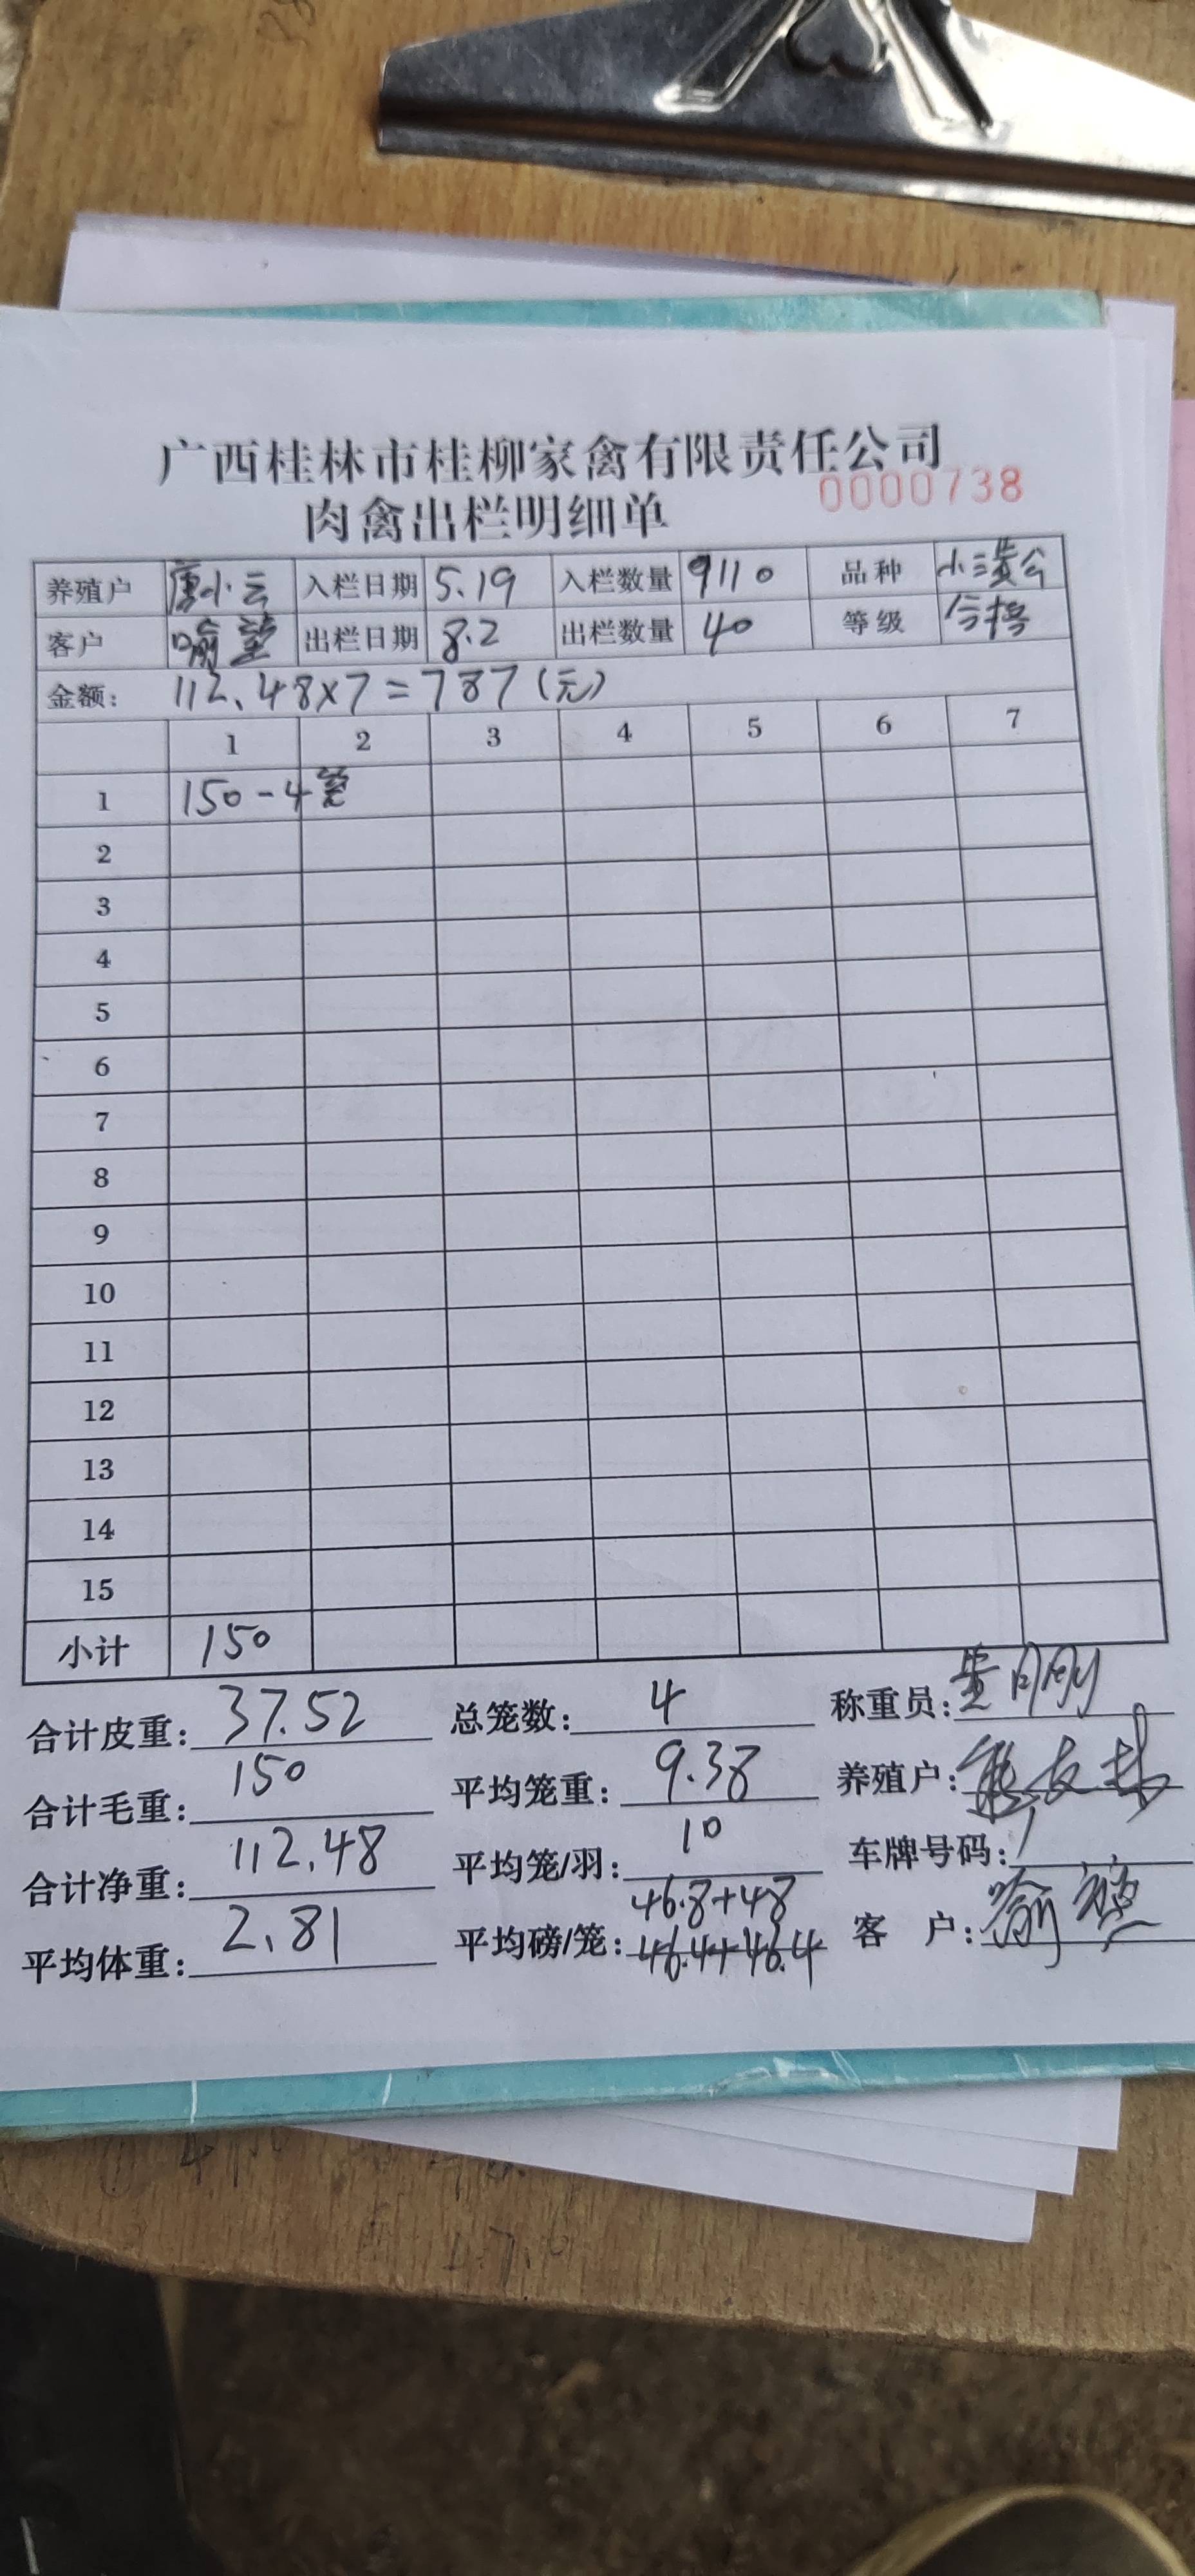 广西桂林市桂柳家禽有限责任公司
0000738
肉禽出栏明细单
养殖户 唐小云 入栏日期 5.19 入栏数量 9110 品种 小三黄公
客户 喻 出栏日期 8.2 出栏数量 40 等级 合格
金额: 112.48×7=787(元)
1 2 3 4 5 6 7
1 150-4笼
2
3
4
5
6
7
8
9
10
11
12
13
14
15
小计 150
合计皮重: 37.52 总笼数: 4 称重员: 黄
合计毛重: 150 平均笼重: 9.38 养殖户:
合计净重: 112.48 平均笼/羽: 10 车牌号码: /
46.8+48
平均体重: 2.81 平均磅/笼: 46.4+46.4 客 户: 喻